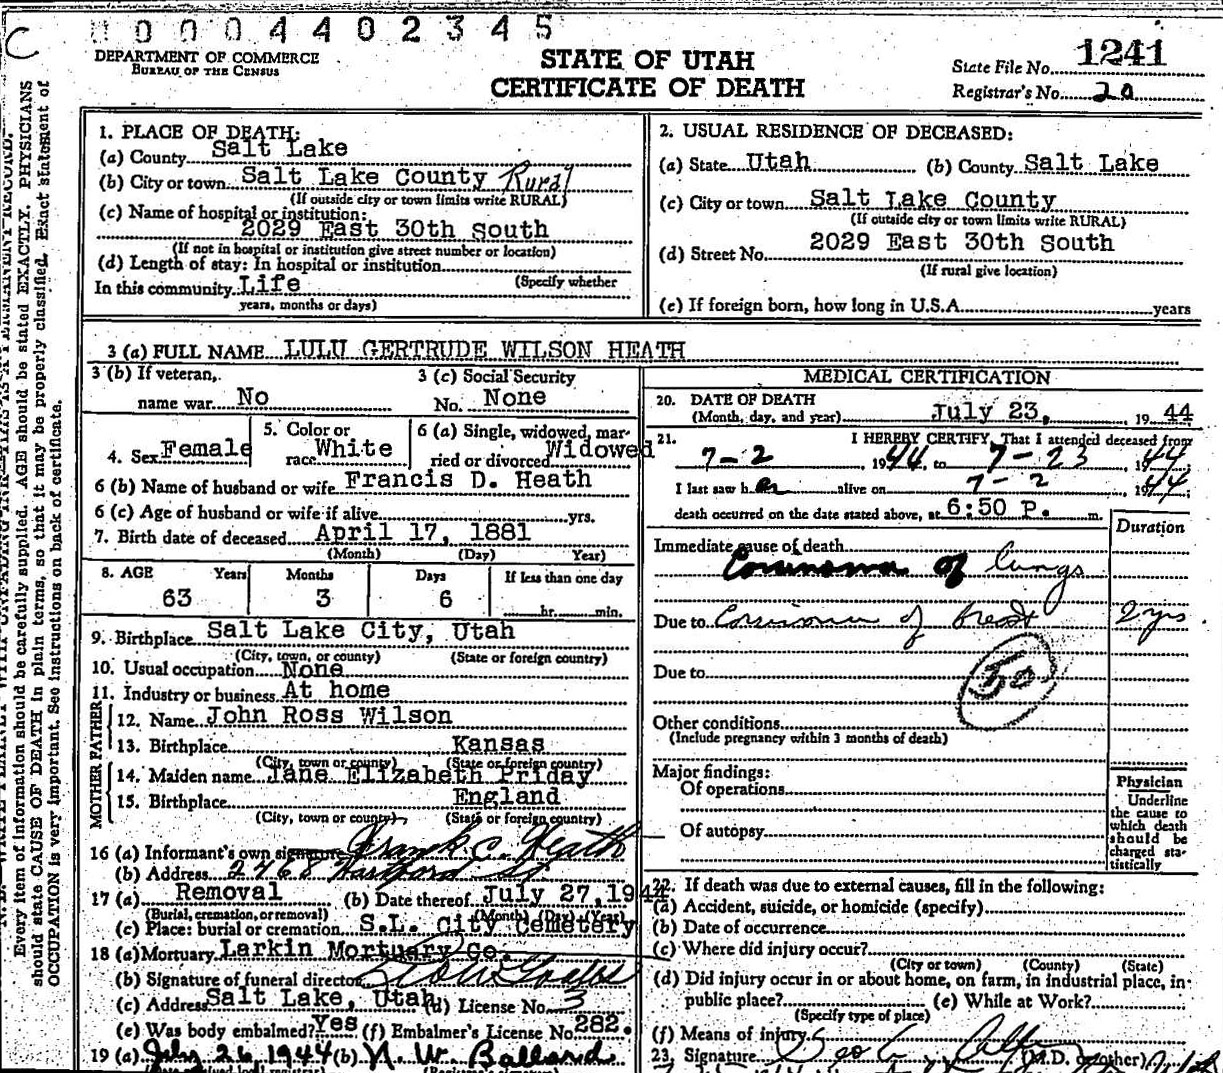 C
0 0 0 4 4 0 2 3 4 5
DEPARTMENT OF COMMERCE
BUREAU OF THE CENSUS
STATE OF UTAH
CERTIFICATE OF DEATH
State File No. 1241
Registrar's No. 20
Every item of information should be carefully supplied. AGE should be stated EXACTLY. PHYSICIANS
should state CAUSE OF DEATH in plain terms, so that it may be properly classified. Exact statement of
OCCUPATION is very important. See instructions on back of certificate.
1. PLACE OF DEATH:
(a) County Salt Lake
(b) City or town Salt Lake County Rural
(If outside city or town limits write RURAL)
(c) Name of hospital or institution:
2029 East 30th South
(If not in hospital or institution give street number or location)
(d) Length of stay: In hospital or institution
(Specify whether
In this community Life
years, months or days)
2. USUAL RESIDENCE OF DECEASED:
(a) State Utah (b) County Salt Lake
(c) City or town Salt Lake County
(If outside city or town limits write RURAL)
(d) Street No. 2029 East 30th South
(If rural give location)
(e) If foreign born, how long in U.S.A. years
3 (a) FULL NAME LULU GERTRUDE WILSON HEATH
3 (b) If veteran,
name war No
3 (c) Social Security
No. None
4. Sex Female
5. Color or
race White
6 (a) Single, widowed, mar-
ried or divorced Widowed
6 (b) Name of husband or wife Francis D. Heath
6 (c) Age of husband or wife if alive yrs.
7. Birth date of deceased April 17, 1881
(Month) (Day) Year)
8. AGE Years Months Days If less than one day
63 3 6 hr. min.
9. Birthplace Salt Lake City, Utah
(City, town, or county) (State or foreign country)
10. Usual occupation None
11. Industry or business At home
FATHER
12. Name John Ross Wilson
13. Birthplace Kansas
(City, town or county) (State or foreign country)
MOTHER
14. Maiden name Jane Elizabeth Priday
15. Birthplace England
(City, town or county) (State or foreign country)
16 (a) Informant's own signature Frank C. Heath
(b) Address 2468 Hartford St
17 (a) Removal (b) Date thereof July 27, 1944
(Burial, cremation, or removal) (Month) (Day) (Year)
(c) Place: burial or cremation S.L. City Cemetery
18 (a) Mortuary Larkin Mortuary Co.
(b) Signature of funeral director
(c) Address Salt Lake, Utah (d) License No. 3
(e) Was body embalmed? Yes (f) Embalmer's License No. 282.
19 (a) July 26 1944 (b) N. W. Ballard
MEDICAL CERTIFICATION
20. DATE OF DEATH
(Month, day, and year) July 23, 19 44
21. I HEREBY CERTIFY, That I attended deceased from
7-2, 1944, to 7-23 1944
I last saw her alive on 7-2 1944;
death occurred on the date stated above, at 6:50 P. m.
Duration
Immediate cause of death
Carcinoma of lungs
Due to Carcinoma of breast 2 yrs.
Due to
50
Other conditions
(Include pregnancy within 3 months of death)
Major findings:
Of operations
Of autopsy
Physician
Underline
the cause to
which death
should be
charged sta-
tistically
22. If death was due to external causes, fill in the following:
(a) Accident, suicide, or homicide (specify)
(b) Date of occurrence
(c) Where did injury occur?
(City or town) (County) (State)
(d) Did injury occur in or about home, on farm, in industrial place, in
public place? (e) While at Work?
(Specify type of place)
(f) Means of injury
23. Signature (M.D. or other)